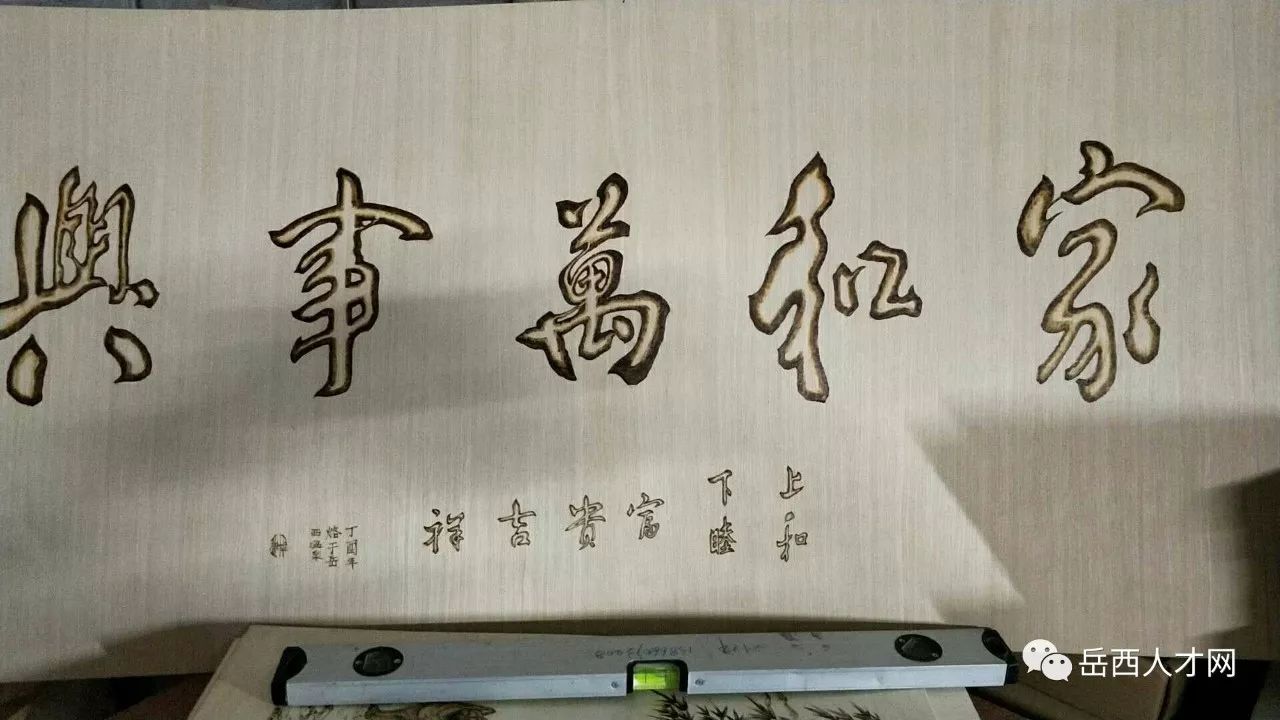 家和萬事興
上和
下睦
富貴吉祥
丁酉年
烙于岳
西温泉
岳西人才网